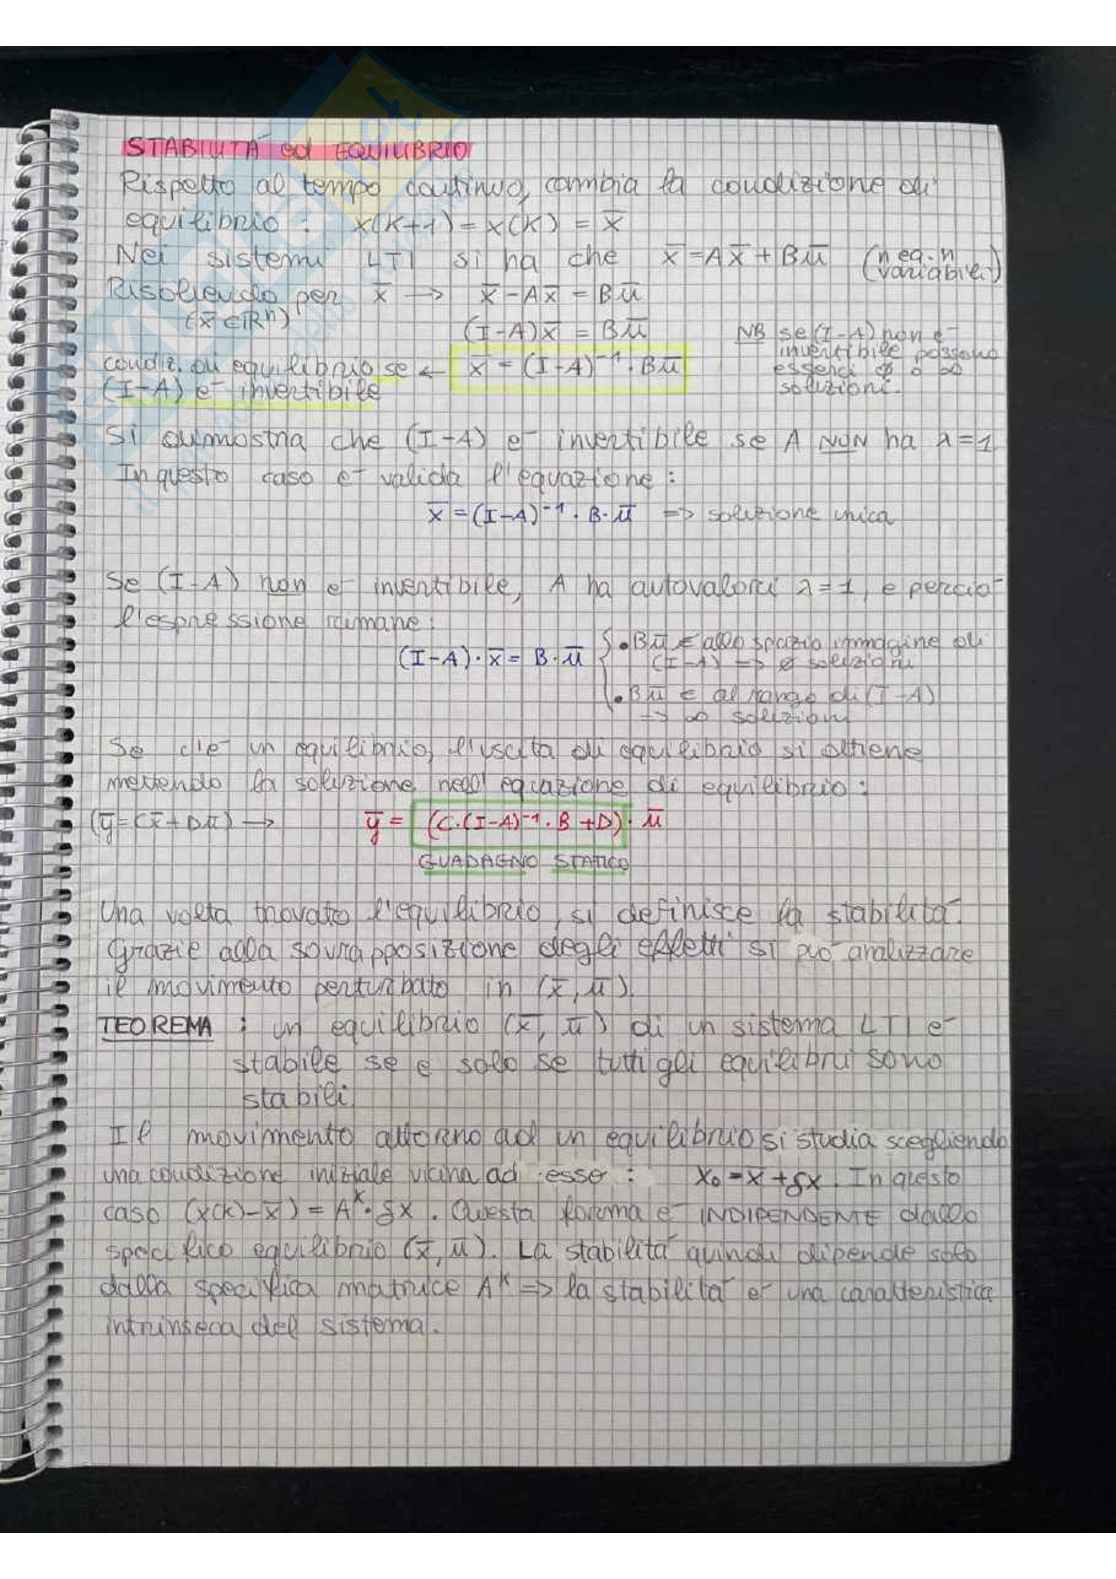 STABILITÀ ed EQUILIBRIO
Rispetto al tempo continuo, cambia la condizione di
equilibrio : x(K+1) = x(K) = x̅
Nei sistemi LTI si ha che x̅ = Ax̅ + Bu̅ (n eq. n variabili)
Risolvendo per x̅ → x̅ - Ax̅ = Bu̅
(x̅ ∈ ℝⁿ)
(I-A)x̅ = Bu̅
condiz. di equilibrio se ← x̅ = (I-A)⁻¹ · Bu̅
(I-A) è invertibile
NB se (I-A) non è
invertibile possono
esserci ∅ o ∞
soluzioni
Si dimostra che (I-A) è invertibile se A NON ha λ=1
In questo caso è valida l'equazione :
x̅ = (I-A)⁻¹ · B · u̅ => soluzione unica
Se (I-A) non è invertibile, A ha autovalori λ=1, e perciò
l'espressione rimane :
(I-A) · x̅ = B · u̅ { • Bu̅ ∉ allo spazio immagine di
(I-A) → ∅ soluzioni
• Bu̅ ∈ al rango di (I-A)
→ ∞ soluzioni
Se c'è un equilibrio, l'uscita di equilibrio si ottiene
mettendo la soluzione nell'equazione di equilibrio :
(y̅ = Cx̅ + Du̅) → y̅ = (C·(I-A)⁻¹ · B + D) · u̅
GUADAGNO STATICO
Una volta trovato l'equilibrio, si definisce la stabilità.
Grazie alla sovrapposizione degli effetti si può analizzare
il movimento perturbato in (x̅, u̅).
TEOREMA : un equilibrio (x̅, u̅) di un sistema LTI è
stabile se e solo se tutti gli equilibri sono
stabili.
Il movimento attorno ad un equilibrio si studia scegliendo
una condizione iniziale vicina ad esso : x₀ = x + δx. In questo
caso (x(k)-x̅) = Aᴷ · δx. Questa forma è INDIPENDENTE dallo
specifico equilibrio (x̅, u̅). La stabilità quindi dipende solo
dalla specifica matrice Aᴷ => la stabilità è una caratteristica
intrinseca del sistema.